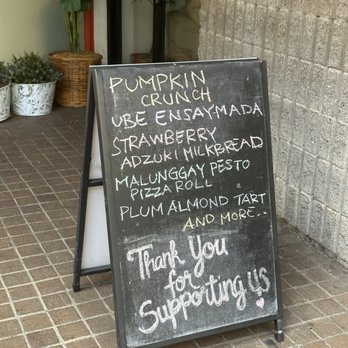 PUMPKIN
CRUNCH
UBE ENSAYMADA
STRAWBERRY
ADZUKI MILKBREAD
MALUNGGAY PESTO
PIZZA ROLL
PLUM ALMOND TART
AND MORE..
Thank You
for
Supporting us